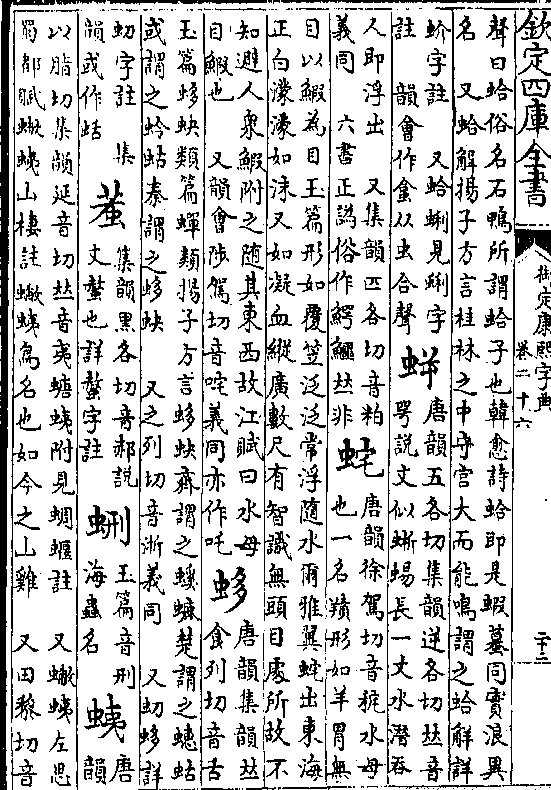 欽定四庫全書
御定康熙字典
卷二十六
二十二
聲曰蛤俗名石鴨所謂蛤子也韓愈詩蛤即是蝦蟇同實浪異
名　又蛤解揚子方言桂林之中守宫大而能鳴謂之蛤解詳
蚧字註　又蛤蜊見蜊字
註　韻會作蛿从虫合聲
蛘
唐韻五各切集韻逆各切𠀤音
咢説文似蜥蜴長一丈水潜吞
人即浮出　又集韻匹各切音粕
義同　六書正譌俗作鰐鱷𠀤非
蛇
唐韻徐駕切音䄍水母
也一名䗩形如羊胃無
目以鰕為目玉篇形如覆笠泛泛常浮隨水爾雅翼蛇出東海
正白濛濛如沫又如凝血縱廣數尺有智識無頭目處所故不
知避人衆鰕附之随其東西故江賦曰水母
目鰕也　又韻會陟駕切音咤義同亦作吒
蛥
唐韻集韻𠀤
食列切音舌
玉篇蛥蚗類篇蟬類揚子方言蛥蚗齊謂之螇螰楚謂之蟪蛄
或謂之蛉蛄秦謂之蛥蚗　又之列切音淅義同　又蚏蛥詳
蚏字註　集
韻或作蛄
䖧
集韻黑各切音郝説
文螫也詳螫字註
蛚
玉篇音刑
海蟲名
蛦
唐
韻
以脂切集韻延音切𠀤音夷螗蛦附見蜩蝘註　又䗠蛦左思
蜀都賦䗠蛦山棲註䗠蛦鳥名也如今之山雞　又田黎切音